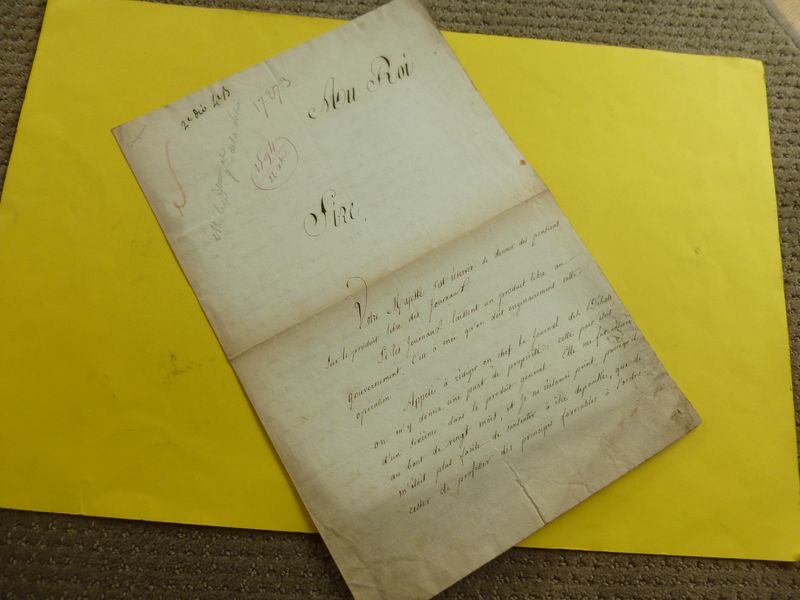 2e div
17273
Au Roi
1594
Sire,
Votre Majesté s'est réservée de donner des pensions
sur le produit libre des Journaux.
Si les Journaux laissent un produit libre au
Gouvernement. C'est à moi qu'on doit originairement cette
opération.
Appelé à rédiger en chef le Journal des Débats
on m'y donna une part de propriété; cette part était
d'un dixième dans le produit général. Elle me fut
au bout de vingt mois, et je ne réclamai point, puisqu'il
m'était plus facile de consentir à être dépouillé, que de
cesser de professer des principes favorables à l'ordre